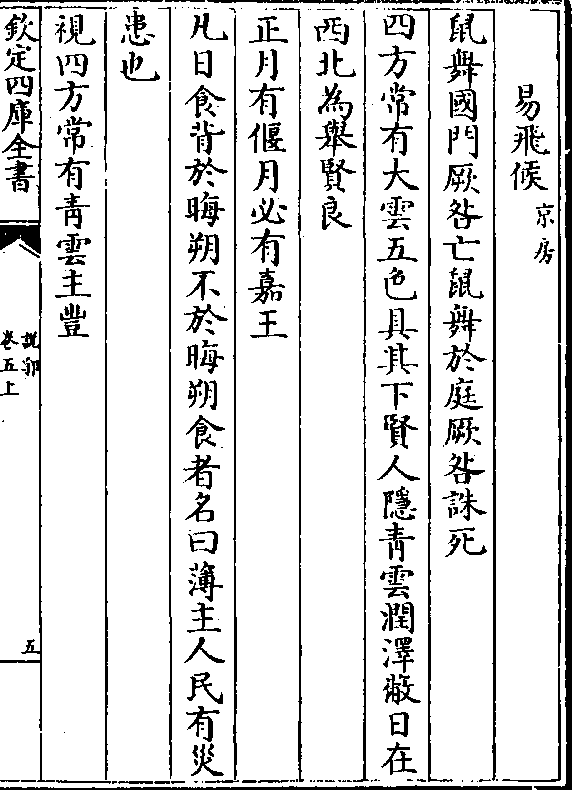 易飛候京房
鼠舞國門厥咎亡鼠舞於庭厥咎誅死
四方常有大雲五色具其下賢人隱青雲潤澤蔽日在
西北為舉賢良
正月有偃月必有嘉王
凡日食皆於晦朔不於晦朔食者名曰薄主人民有災
患也
視四方常有青雲主豐
欽定四庫全書
說郛
卷五上
五